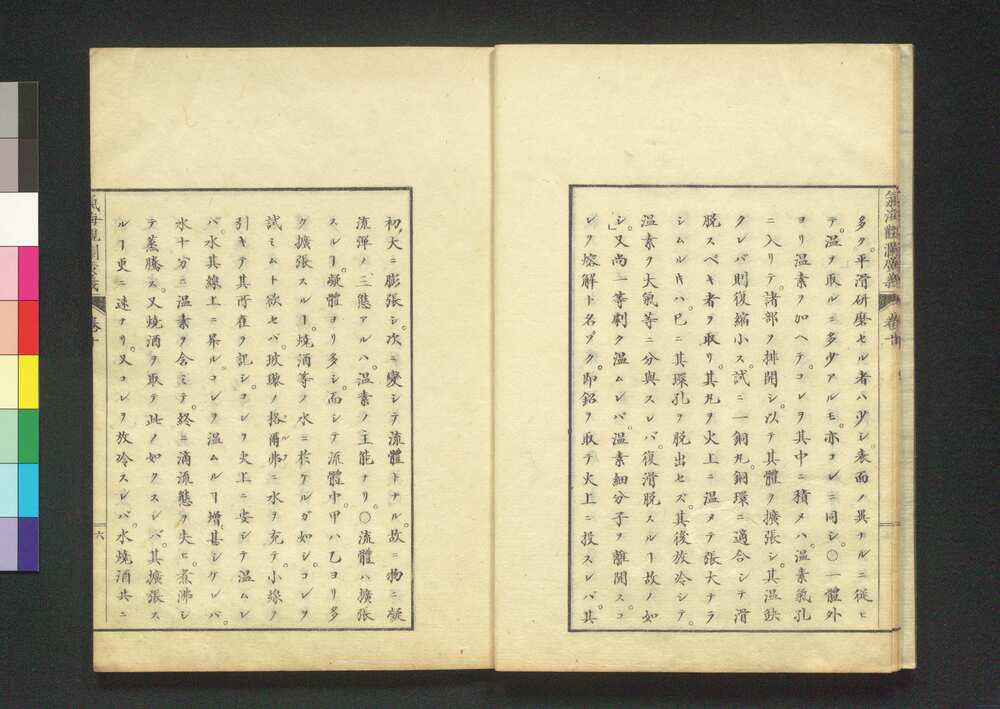 氣海觀瀾廣義 卷十
多ク。平滑研磨セル者ハ少シ。表面ノ異ナルニ從ヒ
テ。温ヲ取ルニ多少アルモ。亦コレニ同シ。〇一體外
ヨリ温素ヲ加ヘテ。コレヲ其中ニ積メハ。温素氣孔
ニ入リテ。諸部ヲ排開シ。以テ其體ヲ擴張シ。其温缺
クレバ則復縮小ス。試ニ一銅丸。銅環ニ適合シテ滑
脱スベキ者ヲ取リ。其丸ヲ火上ニ温メテ張大ナラ
シムルキハ。已ニ其環孔ヲ脱出セズ。其後放冷シテ。
温素ヲ大氣等ニ分與スレバ。復滑脱スルヿ故ノ如
シ。又尚一等劇ク温ムレバ。温素細分子ヲ離開ス。コ
レヲ熔解ト名ヅク。即鉛ヲ取テ火上ニ投スレバ。其
初大ニ膨張シ。次ニ變シテ流體トナル。故ニ物ニ凝
流彈ノ三態アルハ。温素ノ主能ナリ。〇流體ハ擴張
スルヿ。凝體ヨリ多シ。而シテ流體中。甲ハ乙ヨリ多
ク擴張スルヿ。燒酒等ノ水ニ於ケルガ如シ。コレヲ
試ミムト欲セバ。玻璃ノ格爾弗ニ水ヲ充テ。小線ヲ
引キテ其所在ヲ記シ。コレヲ火上ニ安シテ温ムレ
バ。水其線上ニ昇ル。コレヲ温ムルヿ增甚シケレバ。
水十分ニ温素ヲ含ミテ。終ニ滴流態ヲ失ヒ。煮沸シ
テ蒸騰ス。又燒酒ヲ取テ此ノ如クスレバ。其擴張ス
ルヿ更ニ速ナリ。又コレヲ放冷スレバ。水燒酒共ニ
氣海觀瀾廣義 卷十 六